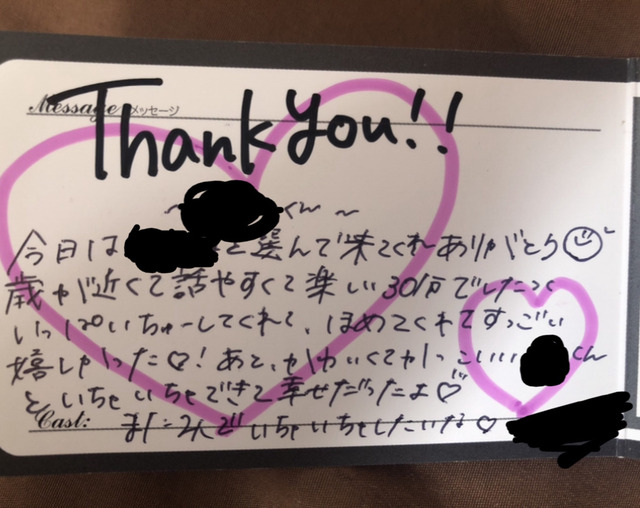 Message メッセージ
Thank you!!
～ くん ～
今日は を選んで来てくれありがとう
歳が近くて話やすくて楽しい30分でしたっ
いっぱいちゅーしてくれて、ほめてくれてすっごい
嬉しかった♡! あと、かわいくてかっこいい くん
といちゃいちゃできて幸せだったよ♡
Cast: また2人でいちゃいちゃしたいな♡